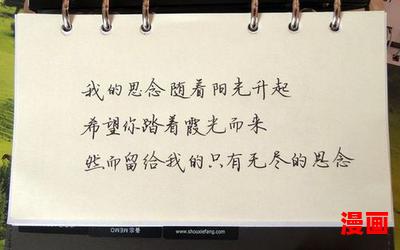 我的思念随着阳光升起
希望你踏着霞光而来
然而留给我的只有无尽的思念
漫画
MEMO
www.shouxiefang.com